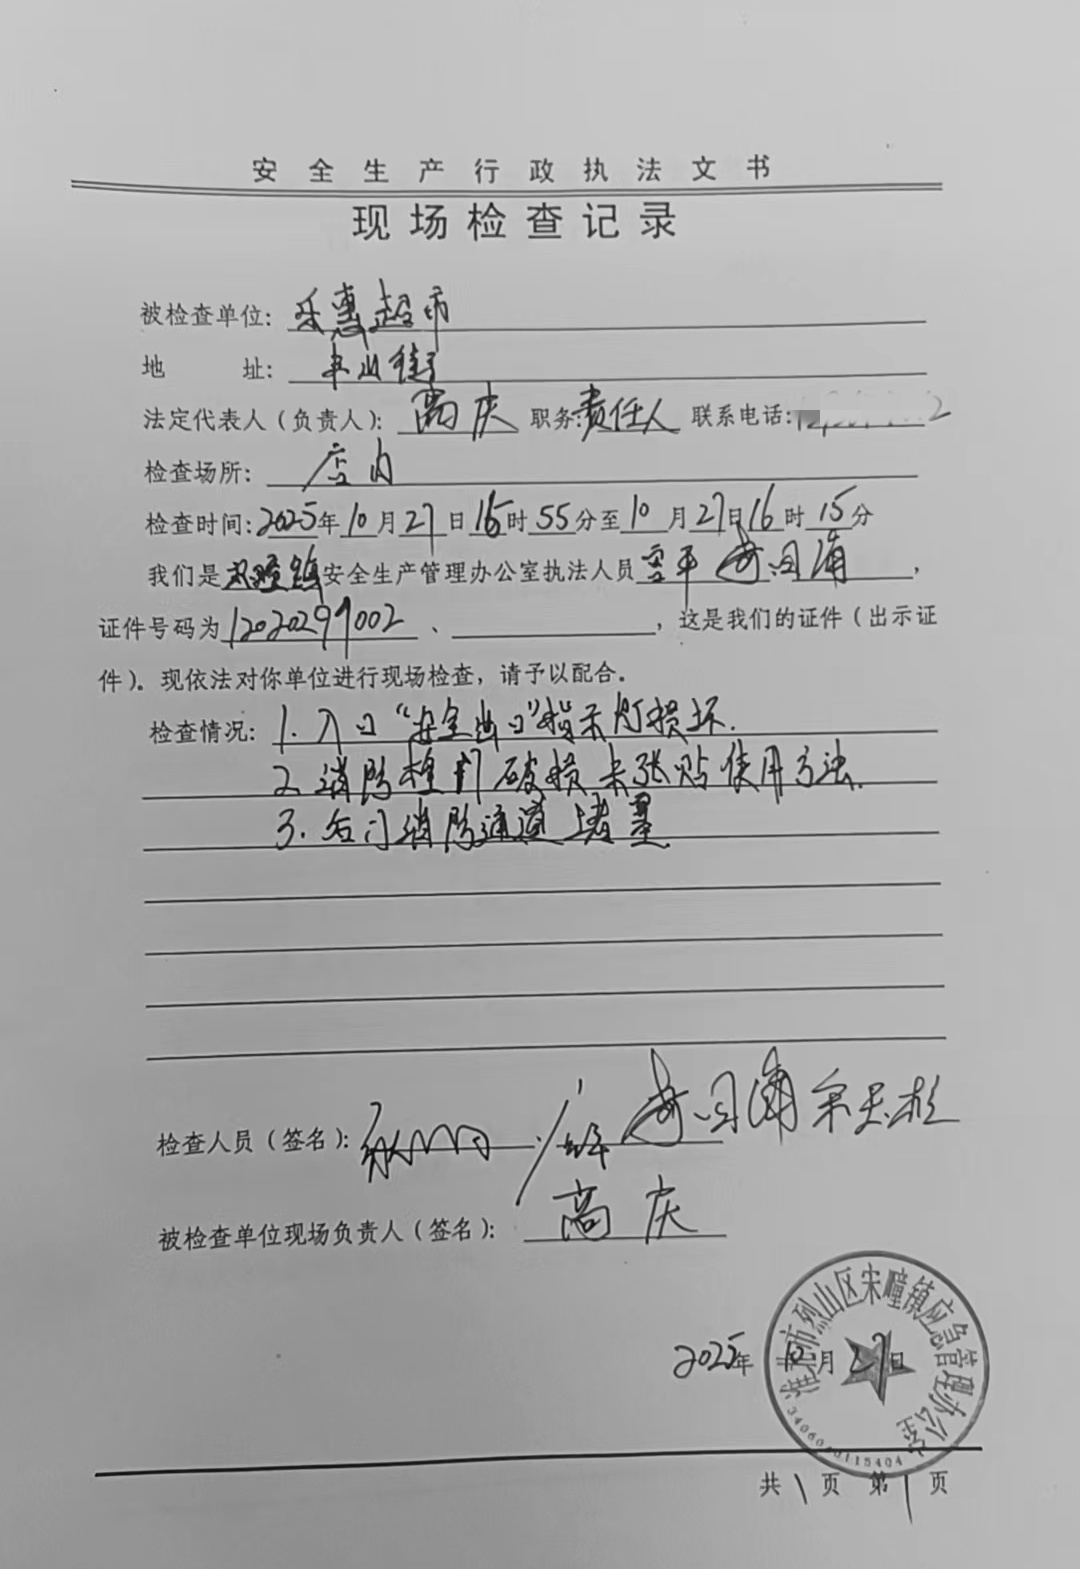 安全生产行政执法文书
现场检查记录
被检查单位：乐惠超市
地 址：丰山街
法定代表人（负责人）：高庆 职务：责任人 联系电话：
检查场所：店内
检查时间：2025年10月27日16时55分至10月27日16时15分
我们是宋疃镇安全生产管理办公室执法人员
证件号码为12020299002、，这是我们的证件（出示证
件）。现依法对你单位进行现场检查，请予以配合。
检查情况：1.入口“安全出口”指示灯损坏.
2.消防栓门破损未张贴使用方法.
3.后门消防通道堵塞
检查人员（签名）：
被检查单位现场负责人（签名）：高庆
2025年10月27日
淮北市烈山区宋疃镇应急管理办公室
共1页 第1页